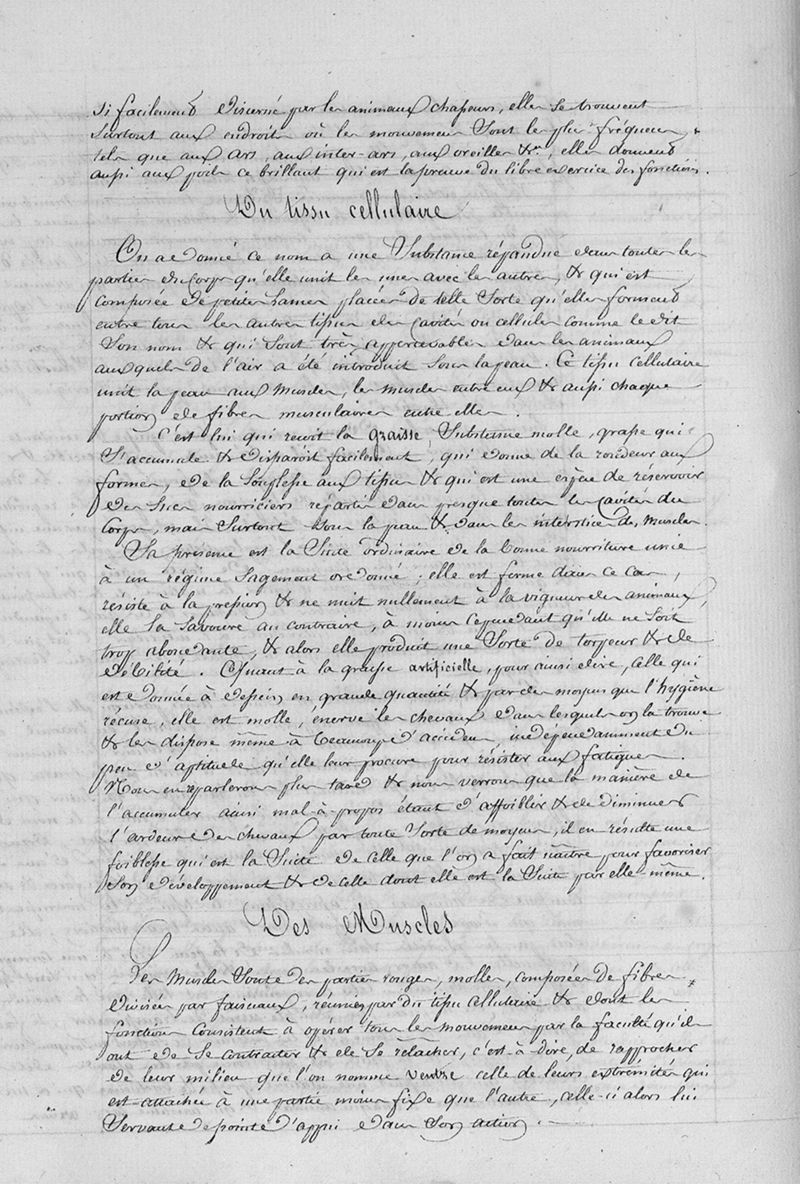 si facilement discerné par les animaux chasseurs, elles se trouvent
surtout aux endroits où les mouvemens sont les plus fréquens,
tels que aux ars, aux inter-ars, aux oreilles &ca, elles donnent
aussi aux poils ce brillant qui est la preuve du libre exercice des fonctions.
Du tissu cellulaire
On a donné ce nom a une substance répandue dans toutes les
parties du corps qu'elle unit les unes avec les autres, & qui est
composée de petites lames placées de telle sorte qu'elles forment
entre tous les autres tissus des cavités ou cellules comme le dit
son nom & qui sont très appercevables dans les animaux
auxquels de l'air a été introduit sous la peau. Ce tissu cellulaire
unit la peau aux muscles, les muscles entre eux & aussi chaque
portion de fibres musculaires entre elles.
C'est lui qui reçoit la graisse, substance molle, grasse qui
s'accumule & disparoit facilement, qui donne de la rondeur aux
formes, de la souplesse aux tissus & qui est une espèce de réservoir
des sucs nourriciers répartis dans presque toutes les cavités du
corps, mais surtout sous la peau & dans les interstices des muscles.
Sa présence est la suite ordinaire de la bonne nourriture unie
à un régime sagement ordonné, elle est ferme dans ce cas,
résiste à la pression & ne nuit nullement à la vigueur des animaux,
elle la savoure au contraire, à moins cependant qu'elle ne soit
trop abondante, & alors elle produit une sorte de torpeur & de
débilité. Quant à la graisse artificielle, pour ainsi dire, celle qui
est donnée à dessein en grande quantité & par des moyens que l'hygiène
récuse, elle est molle, énerve les chevaux dans lesquels on la trouve
& les dispose même à beaucoup d'accidens indépendamment du
peu d'aptitude qu'elle leur procure pour résister aux fatigues.
Nous en reparlerons plus tard & nous verrons que la manière de
l'accumuler ainsi mal-à-propos étant d'affoiblir & de diminuer
l'ardeur des chevaux par toute sorte de moyens, il en résulte une
foiblesse qui est la suite de celle que l'on a fait naître pour favoriser
son développement & de celle dont elle est la suite par elle-même.
Des Muscles
Les muscles sont des parties rouges, molles, composées de fibres
divisées par faisceaux, réunies par du tissu cellulaire & dont les
fonctions consistent à opérer tous les mouvemens par la faculté qu'ils
ont de se contracter & de se relacher, c'est-à-dire, de rapprocher
de leur milieu que l'on nomme ventre celle de leurs extremités qui
est attachée à une partie moins fixe que l'autre, celle-ci alors lui
servant de point d'appui dans son action.